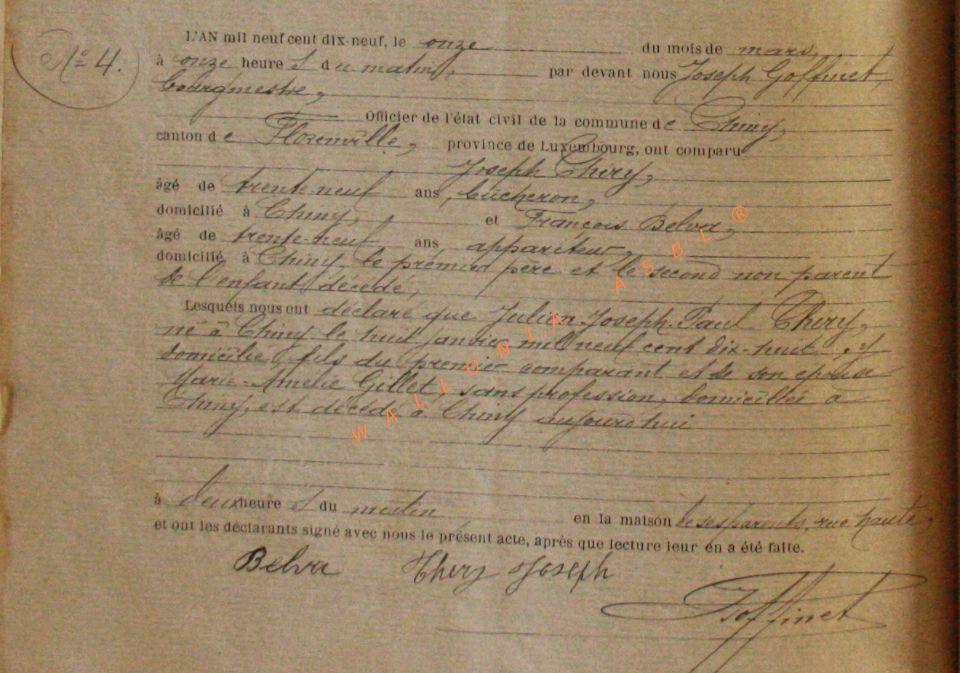 N° 4.
L'AN mil neuf cent dix-neuf, le onze du mois de mars,
à onze heure s du matin, par devant nous Joseph Goffinet,
bourgmestre,
Officier de l'état civil de la commune de Chiny,
canton de Florenville, province de Luxembourg, ont comparu
Joseph Thiry,
âgé de trente-neuf ans, bûcheron,
domicilié à Chiny, et François Belva,
âgé de trente-neuf ans appariteur,
domicilié à Chiny, le premier père et le second non parent
de l'enfant décédé,
Lesquels nous ont déclaré que Julien-Joseph-Paul Thiry,
né à Chiny le huit janvier mil neuf cent dix-huit y
domicilié, fils du premier comparant et de son épouse
Marie-Amélie Gillet, sans profession, domiciliée à
Chiny, est décédé à Chiny aujourd'hui
à deux heure s du matin en la maison de ses parents, rue haute,
et ont les déclarants signé avec nous le présent acte, après que lecture leur en a été faite.
Belva Thiry Joseph
J Goffinet
WALLONIA ASBL ®